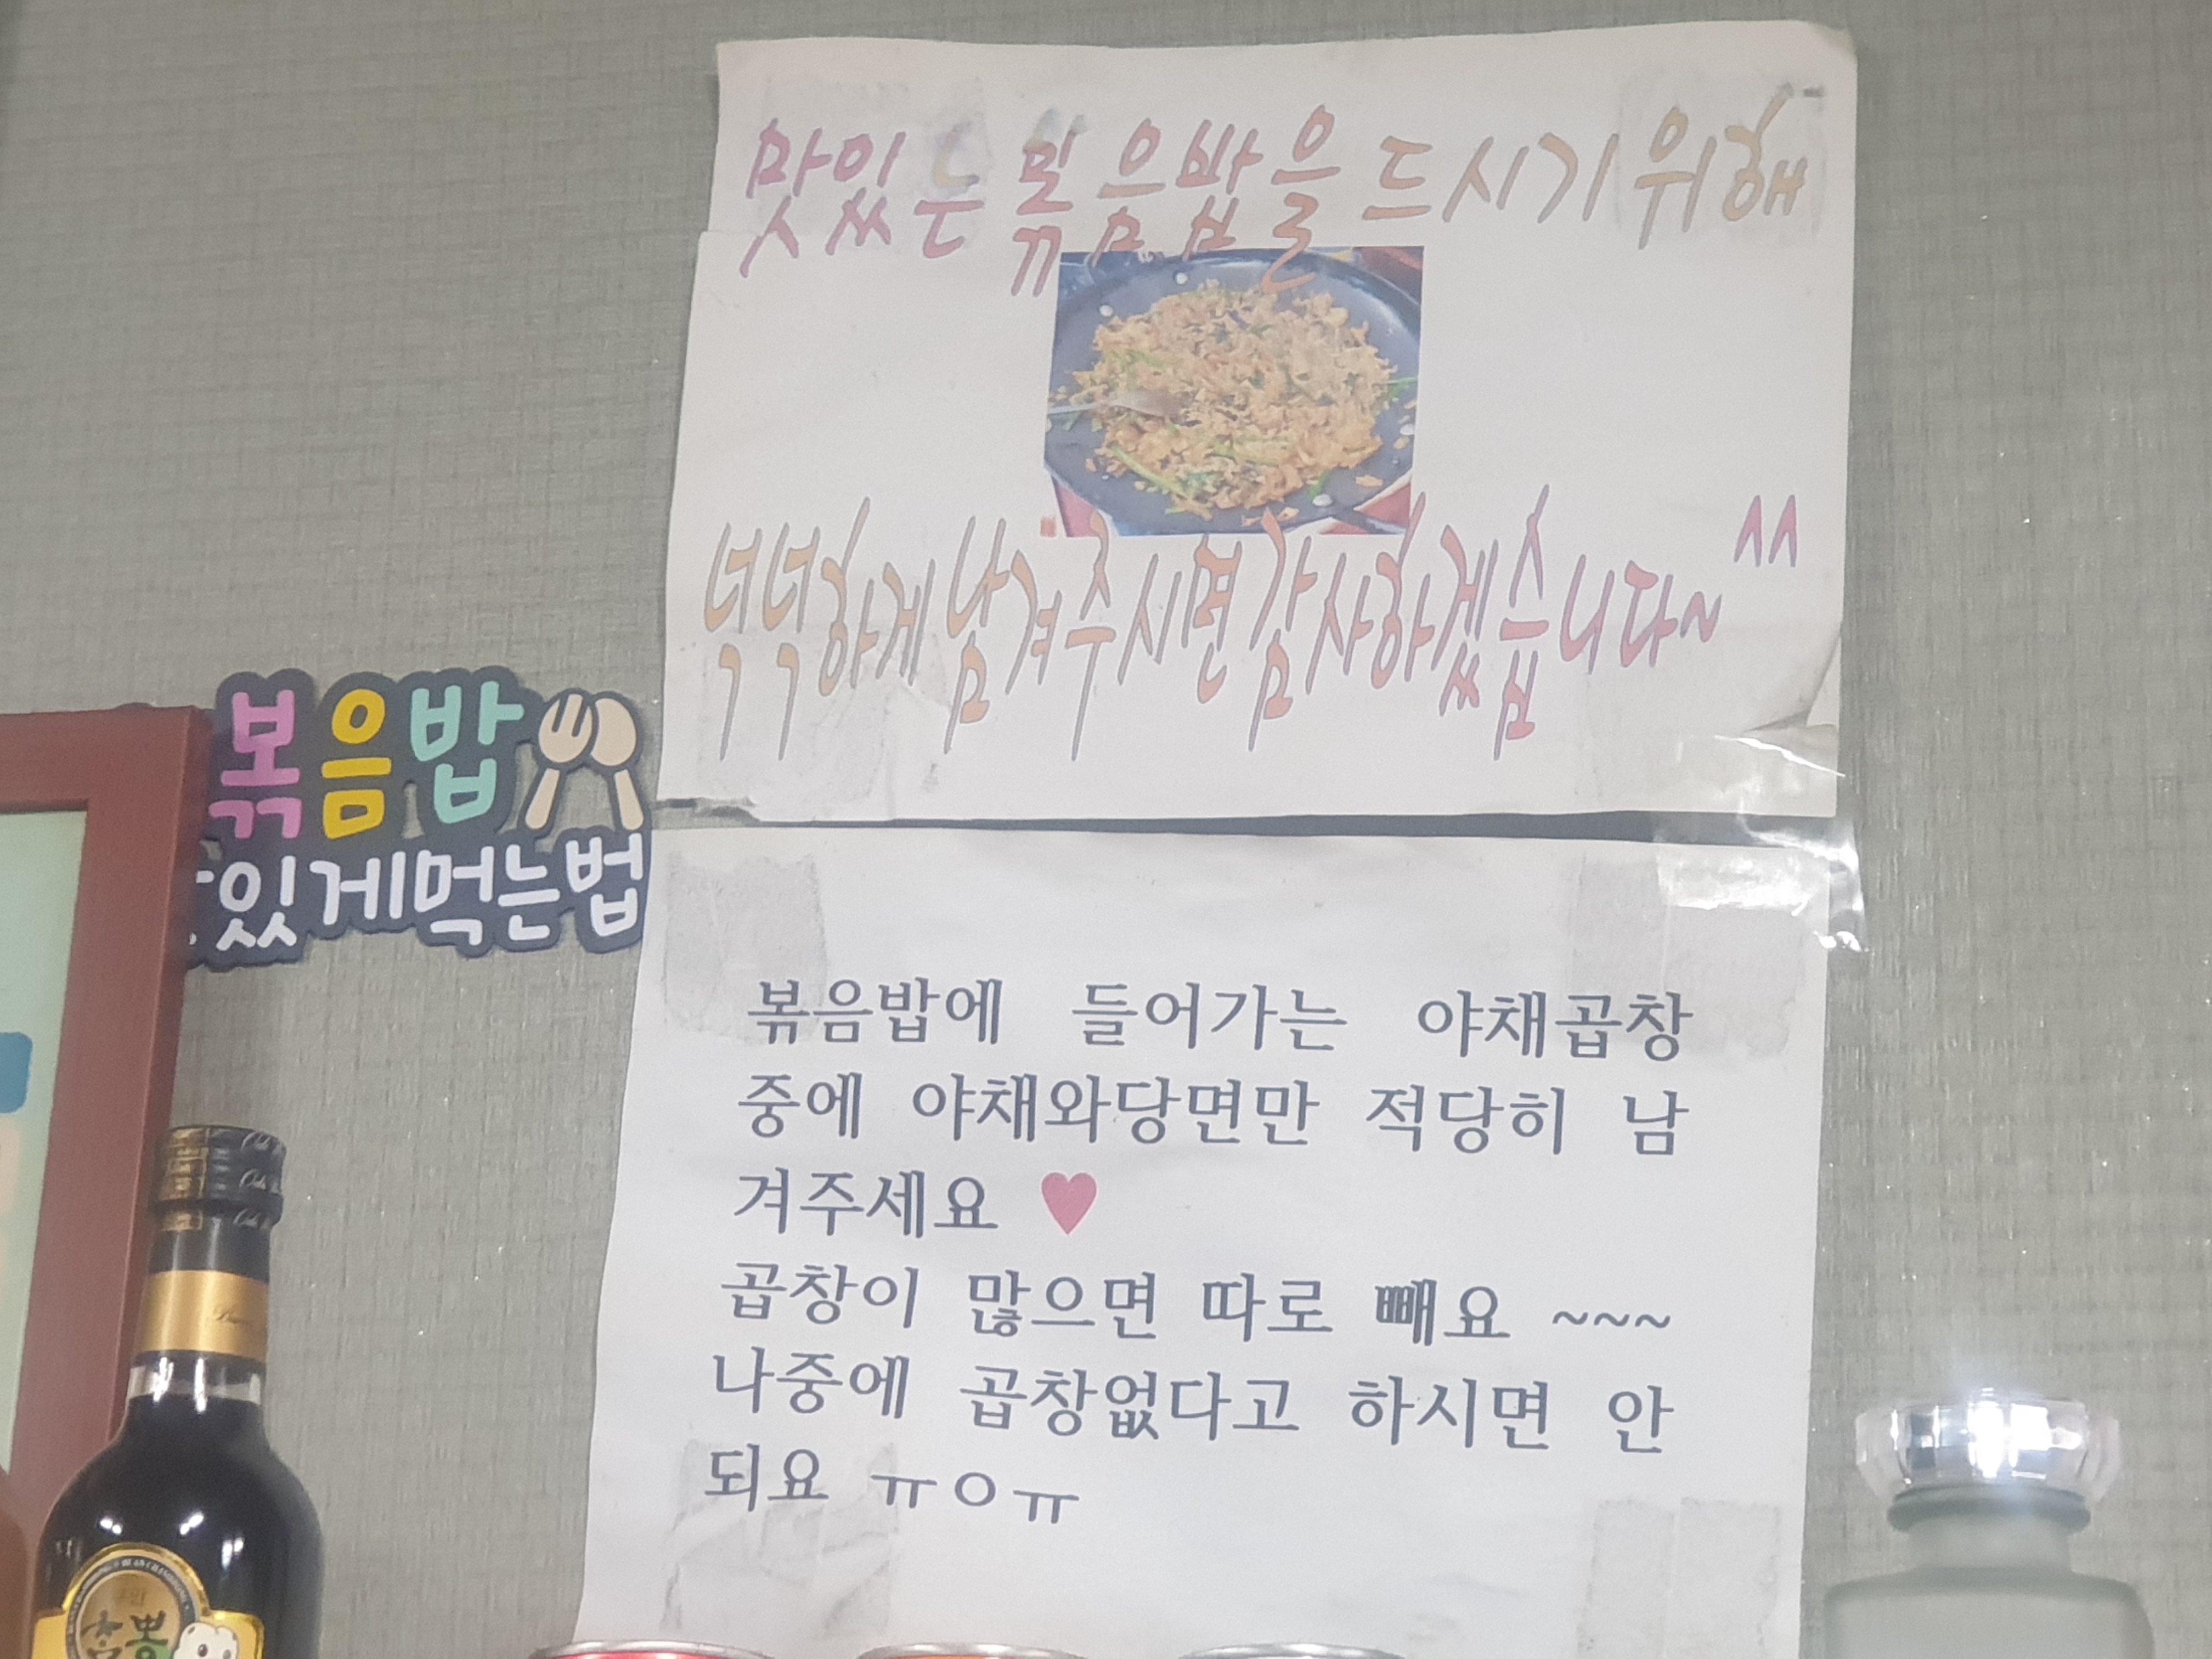 맛있는 볶음밥을 드시기 위해
넉넉하게 남겨주시면 감사하겠습니다~^^
볶음밥
있게먹는법
볶음밥에 들어가는 야채곱창
중에 야채와당면만 적당히 남
겨주세요 ♥
곱창이 많으면 따로 빼요 ~~~
나중에 곱창없다고 하시면 안
되요 ㅠㅇㅠ